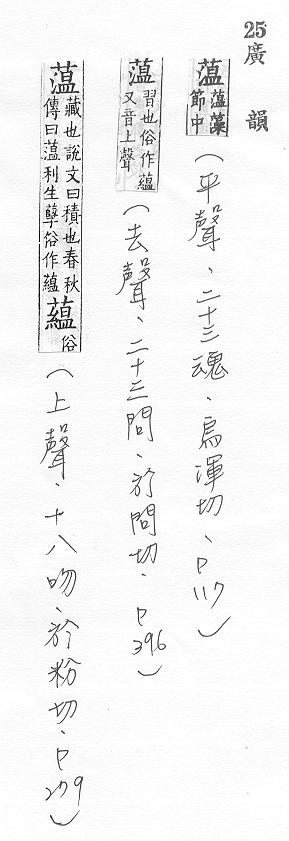 25 廣韻
薀 薀藻節中(平聲、二十三魂、烏渾切、P117)
薀 習也俗作蘊又音上聲(去聲、二十三問、於問切、P396)
薀 藏也說文曰積也春秋傳曰薀利生孽俗作蘊 蘊 俗(上聲、十八吻、於粉切、P279)